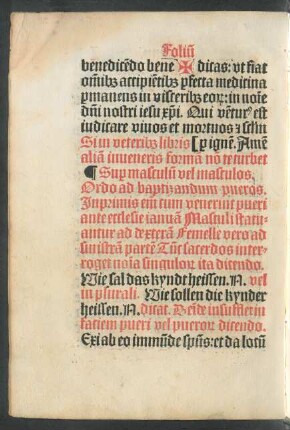 Foliū
benedicēdo bene ✠ dicas: vt fiat
oīnibꝫ accipiētibꝫ ꝑfecta medicina
ꝑmanens in visceribꝫ eoꝝ: in noīe
dn̄i nostri iesu xp̄i. Qui vētur⁹ est
iudicare viuos et mortuos ⁊ sclm
Si in veteribꝫ libris [ꝑ ignē. Amē
aliā inueneris formā nō te turbet
¶ Suꝑ masculū vel masculos.
Ordo ad baptizandum pueros.
Inprimis em̄ tum venerint pueri
ante ecclesie ianuā Masculi statu-
antur ad dexterā Femelle vero ad
sinistrā partē Tūc sacerdos inter-
roget noīa singuloꝝ ita dicendo.
Wie sal das kyndt heissen. N. vel
in plurali. Wie sollen die kynder
heissen. N. dicat. Deīde insufflet in
faciem pueri vel pueroꝝ dicendo.
Exi ab eo immūde spūs: et da locū